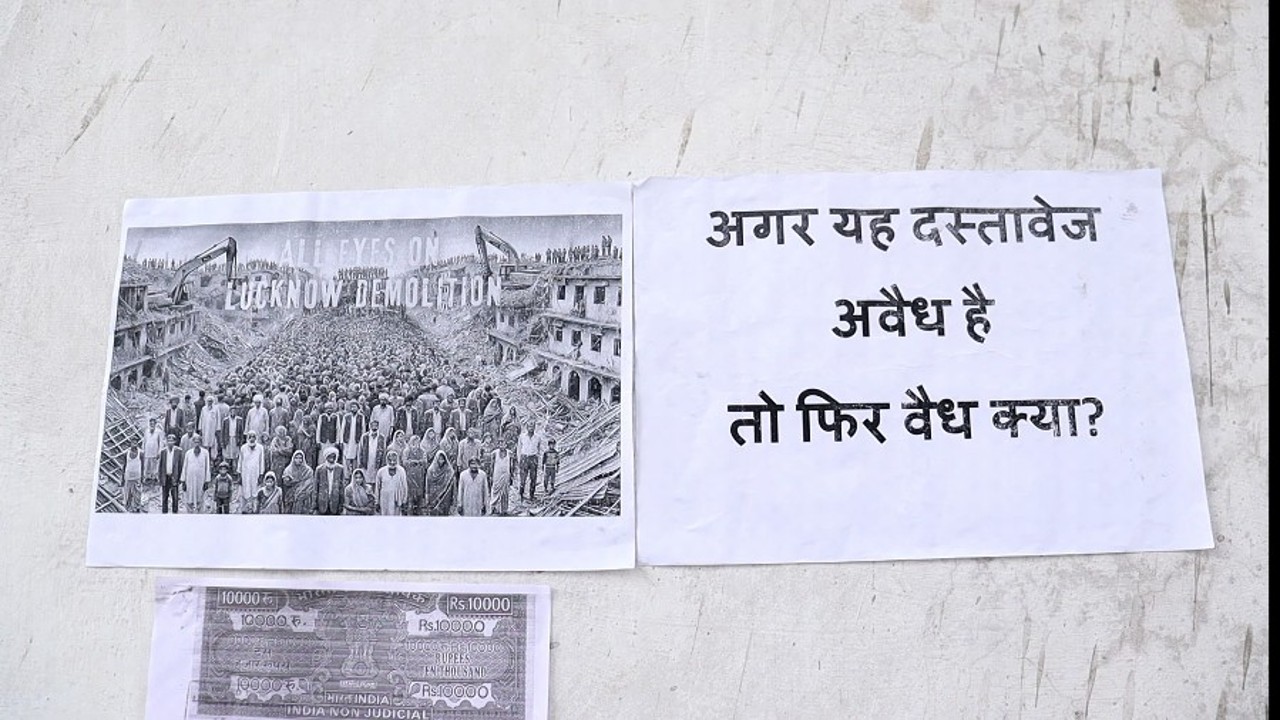 ALL EYES ON
LUCKNOW DEMOLITION
अगर यह दस्तावेज
अवैध है
तो फिर वैध क्या?
10000 रु.
Rs.10000
10000 रु.
Rs.10000
RUPEES
TEN THOUSAND
10000 रु.
Rs.10000
भारत INDIA
INDIA NON JUDICIAL